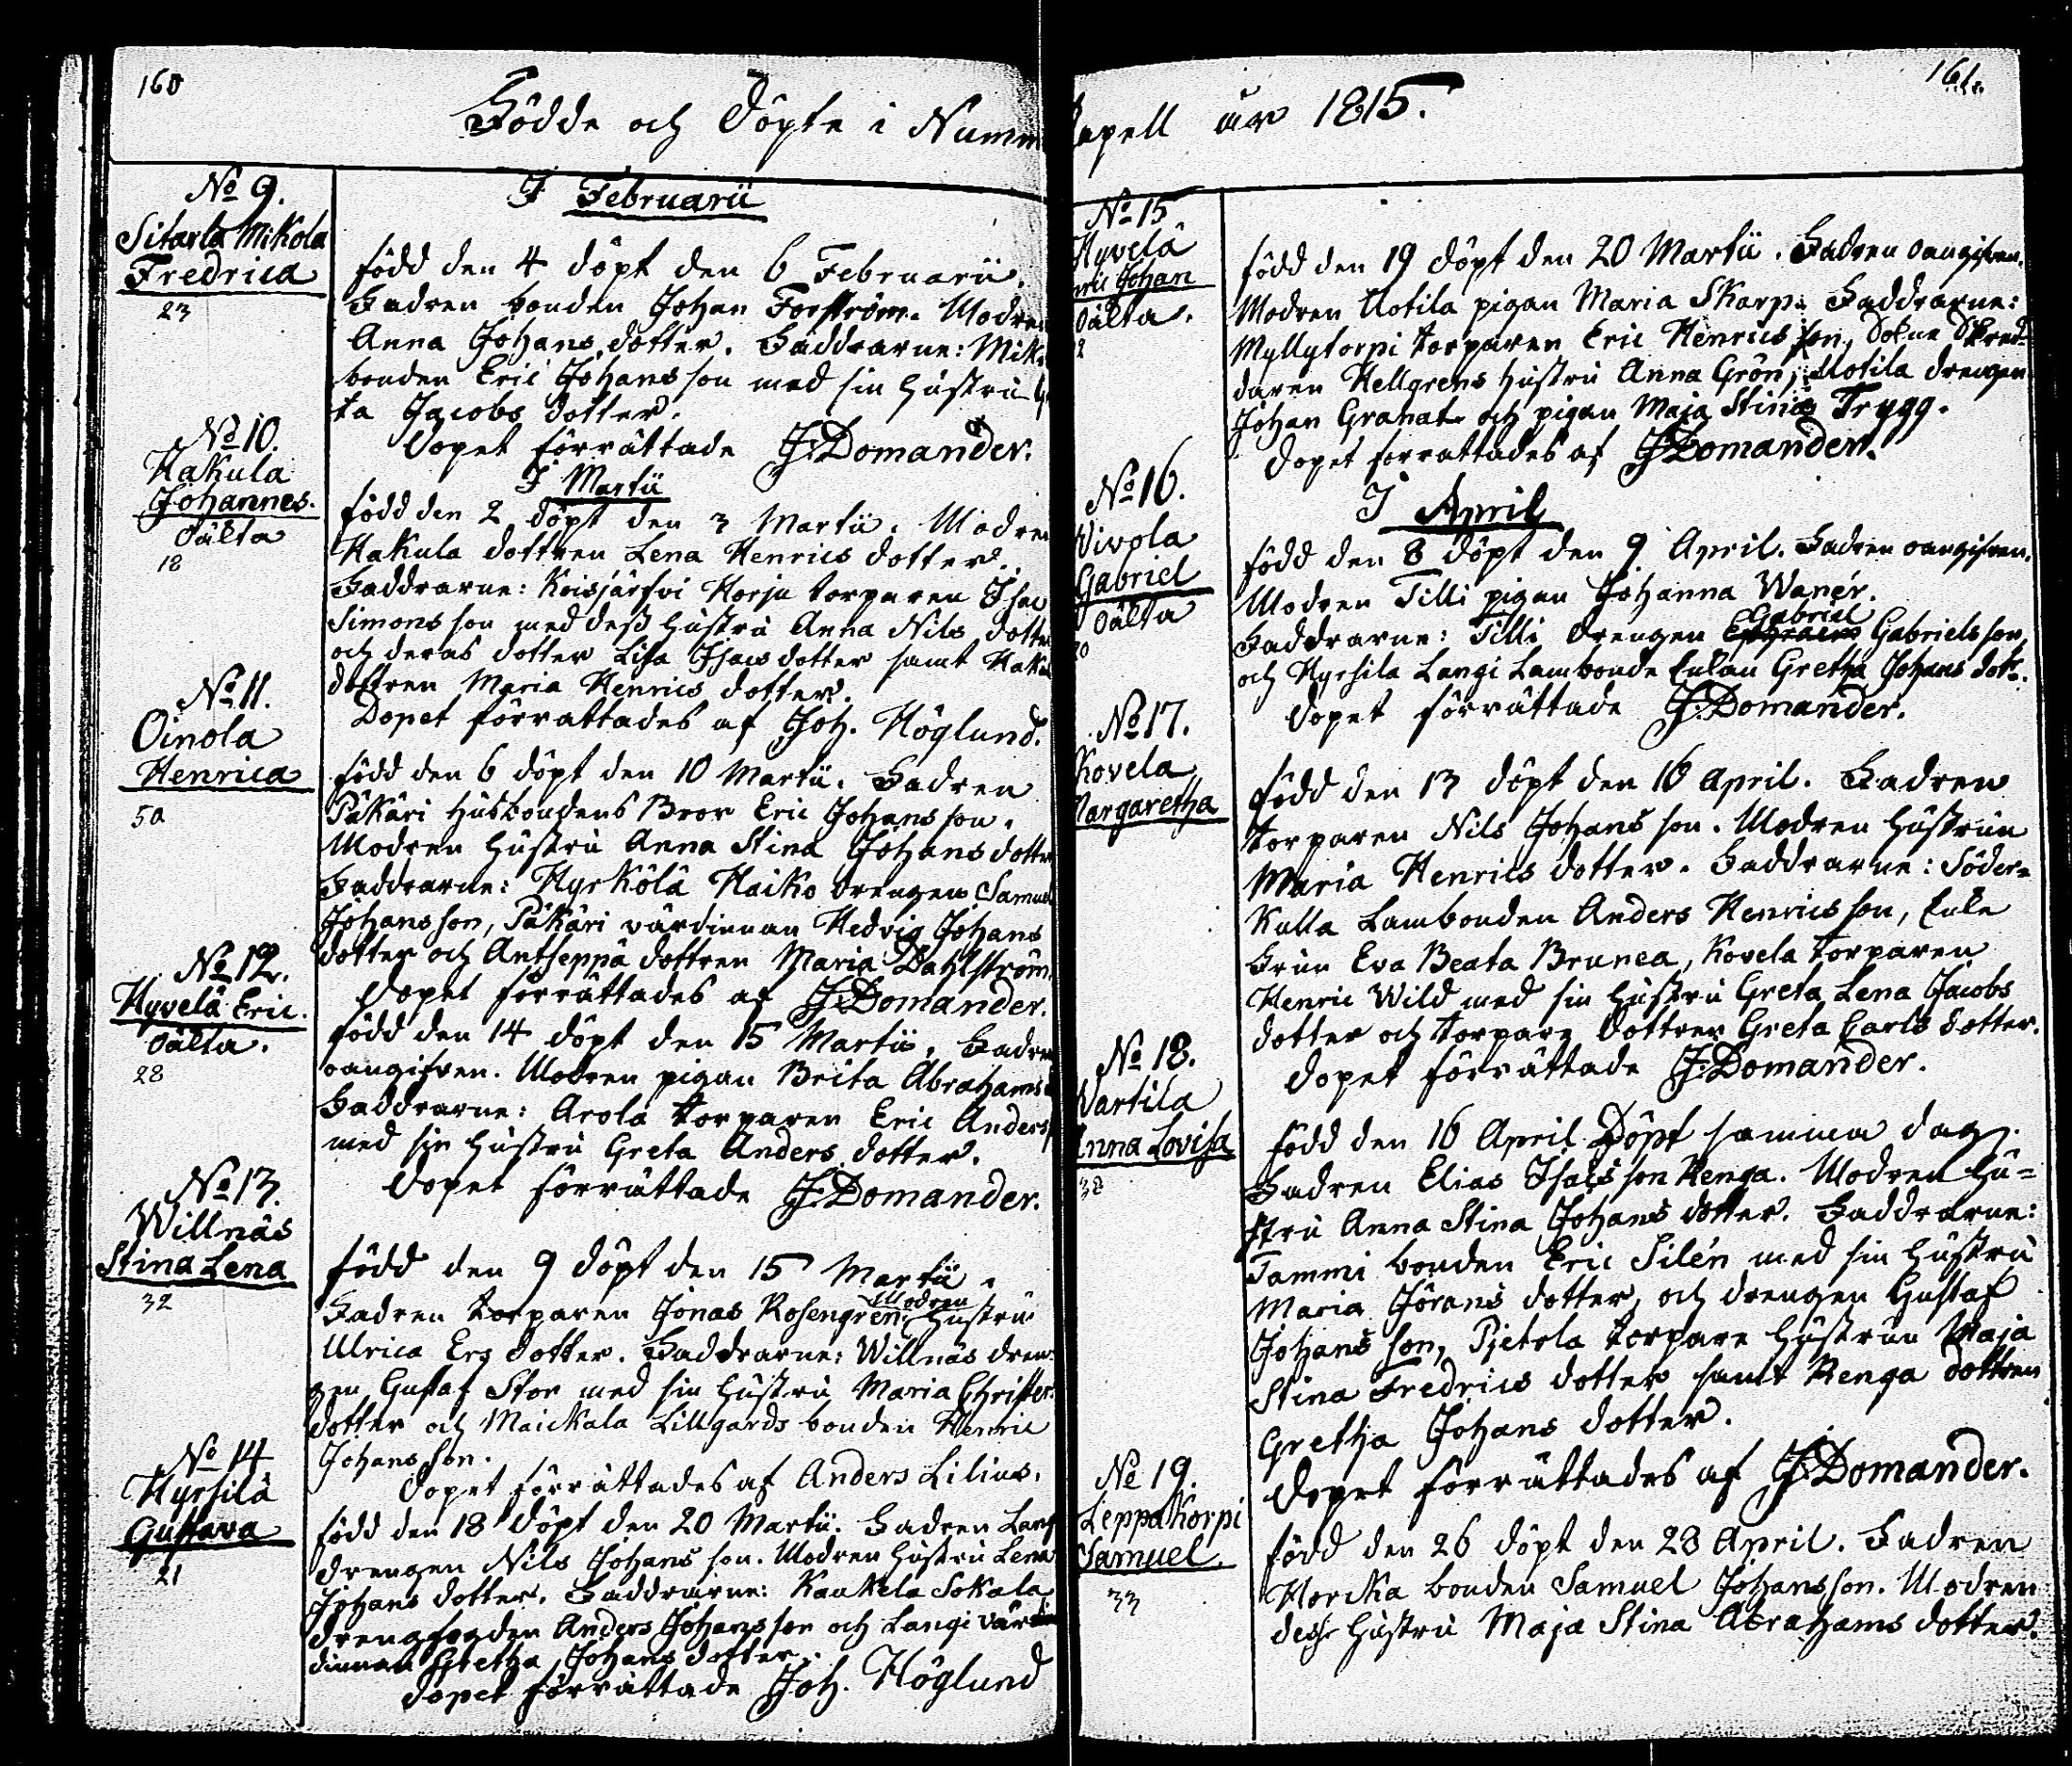 160
Födde och Döpte i Numm
No 9.
Sitarla Mikola
Fredrica
23
I Februarii
född den 4 döpt den 6 Februarii.
Fadren bonden Johan Forsström. Modren
Anna Johans dotter. Faddrarne: Mik
bonden Eric Johans son med sin hustru
ta Jacobs dotter.
Dopet förrättade J. Domander.
No 10.
Hakula
Johannes.
Oälta
18
I Martii
född den 2 döpt den 3 Martii. Modren
Hakula dottren Lena Henrics dotter.
Faddrarne: Koisjärfvi Horju torparen Isac
Simons son med dess hustru Anna Nils dotter
och deras dotter Lisa Isacs dotter samt Haku
dottren Maria Henrics dotter.
Dopet förrattades af Joh. Höglund.
No 11.
Oinola
Henrica
50
född den 6 döpt den 10 Martii. Fadren
Päkäri husbondens Bror Eric Johans son.
Modren hustru Anna Stina Johans dotter
Faddrarne: Hyrkölä Haiko drengen Samuel
Johans son, Päkäri värdinnan Hedvig Johans
dotter och Antseppä dottren Maria Dahlström.
Dopet förrättades af J. Domander.
No 12.
Hyvelä Eric.
oälta.
28
född den 14 döpt den 15 Martii. Fadren
oangifven. Modren pigan Brita Abrahams
Faddrarne: Arola torparen Eric Anders
med sin hustru Greta Anders dotter.
Dopet förrättade J. Domander.
No 13.
Willnäs
Stina Lena
32
född den 9 döpt den 15 Martii.
Fadren torparen Jonas Rosengren. Modren hustru
Ulrica Ers dotter. Faddrarne: Willnäs dren-
gen Gustaf Stor med sin hustru Maria Christers
dotter och Maickala Lillgårds bonden Henric
Johans son.
Dopet förrättades af Anders Lilius.
No 14
Hyrsilä
Gustava
21
född den 18 döpt den 20 Martii. Fadren Langi
drengen Nils Johans son. Modren hustru Lena
Johans dotter. Faddrarne: Kaukela Sokala
drengfogden Anders Johans son och Langi vär
dinnan Gretha Johans dotter.
Dopet förrättade Joh. Höglund
161.
Capell år 1815.
No 15
Hyvelä
Johan
oälta.
född den 19 döpt den 20 Martii. Fadren oangifven.
Modren Uotila pigan Maria Skarp. Faddrarne:
Myllytorpi torparen Eric Henrics son, Sokne Skred-
daren Hellgrens hustru Anna Grön, Uotila drengen
Johan Granat och pigan Maja Stina Trygg.
Dopet forrattades af J. Domander.
No 16.
Wivola
Gabriel
oälta
I April
född den 8 döpt den 9 April. Fadren oangifven.
Modren Tilli pigan Johanna Wanér.
Faddrarne: Tilli drengen Gabriel Gabriels son,
och Hyrsila Langi Lambonde Enkan Gretha Johans dott.
Dopet förrättade J. Domander.
No 17.
Kovela
Margaretha
född den 13 döpt den 16 April. Fadren
torparen Nils Johans son. Modren hustrun
Maria Henrics dotter. Faddrarne: Söder-
kulla Lambonden Anders Henrics son, Enke
Frun Eva Beata Brunea, Kovela torparen
Henric Wild med sin hustru Greta Lena Jacobs
dotter och torpare dottren Greta Carls dotter.
Dopet förrättade J. Domander.
No 18.
Wartila
Anna Lovisa
32
född den 16 April Döpt samma dag.
Fadren Elias Isacs son Henga. Modren hu-
stru Anna Stina Johans dotter. Faddrarne:
Tammi bonden Eric Silén med sin hustru
Maria Jörans dotter, och drengen Gustaf
Johans son, Pjetola torpare hustrun Maja
Stina Fredrics dotter samt Henga dottren
Gretha Johans dotter.
Dopet förrättades af J. Domander.
No 19.
Leppakorpi
Samuel.
33
född den 26 döpt den 28 April. Fadren
Horcka bonden Samuel Johans son. Modren
dess hustru Maja Stina Abrahams dotter.